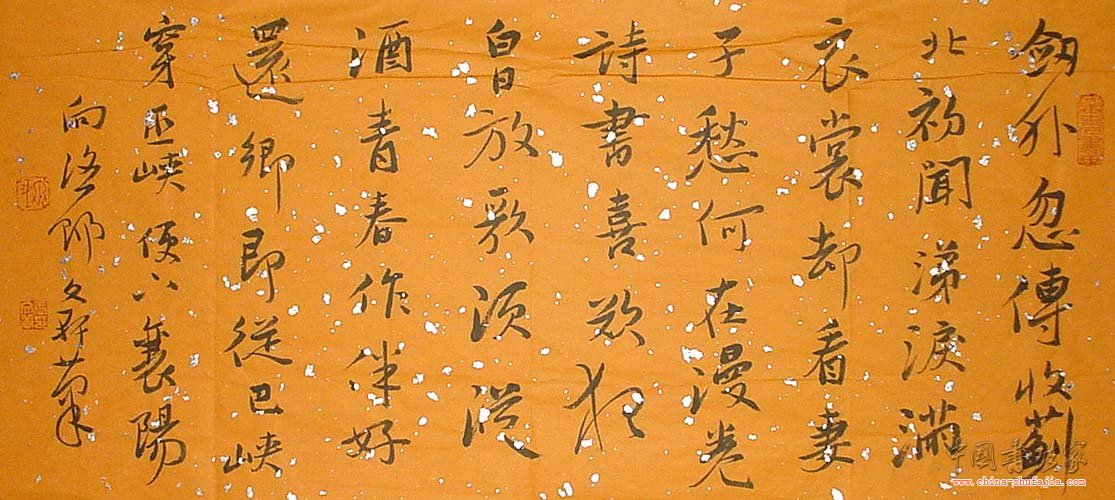 劔外忽傳收薊
北初聞涕淚滿
衣裳却看妻
子愁何在漫卷
詩書喜欲狂
白日放歌須縱
酒青春作伴好
還鄉即從巴峽
穿巫峽便下襄陽
向洛陽文軒筆
中国书法家
www.china-shufajia.com